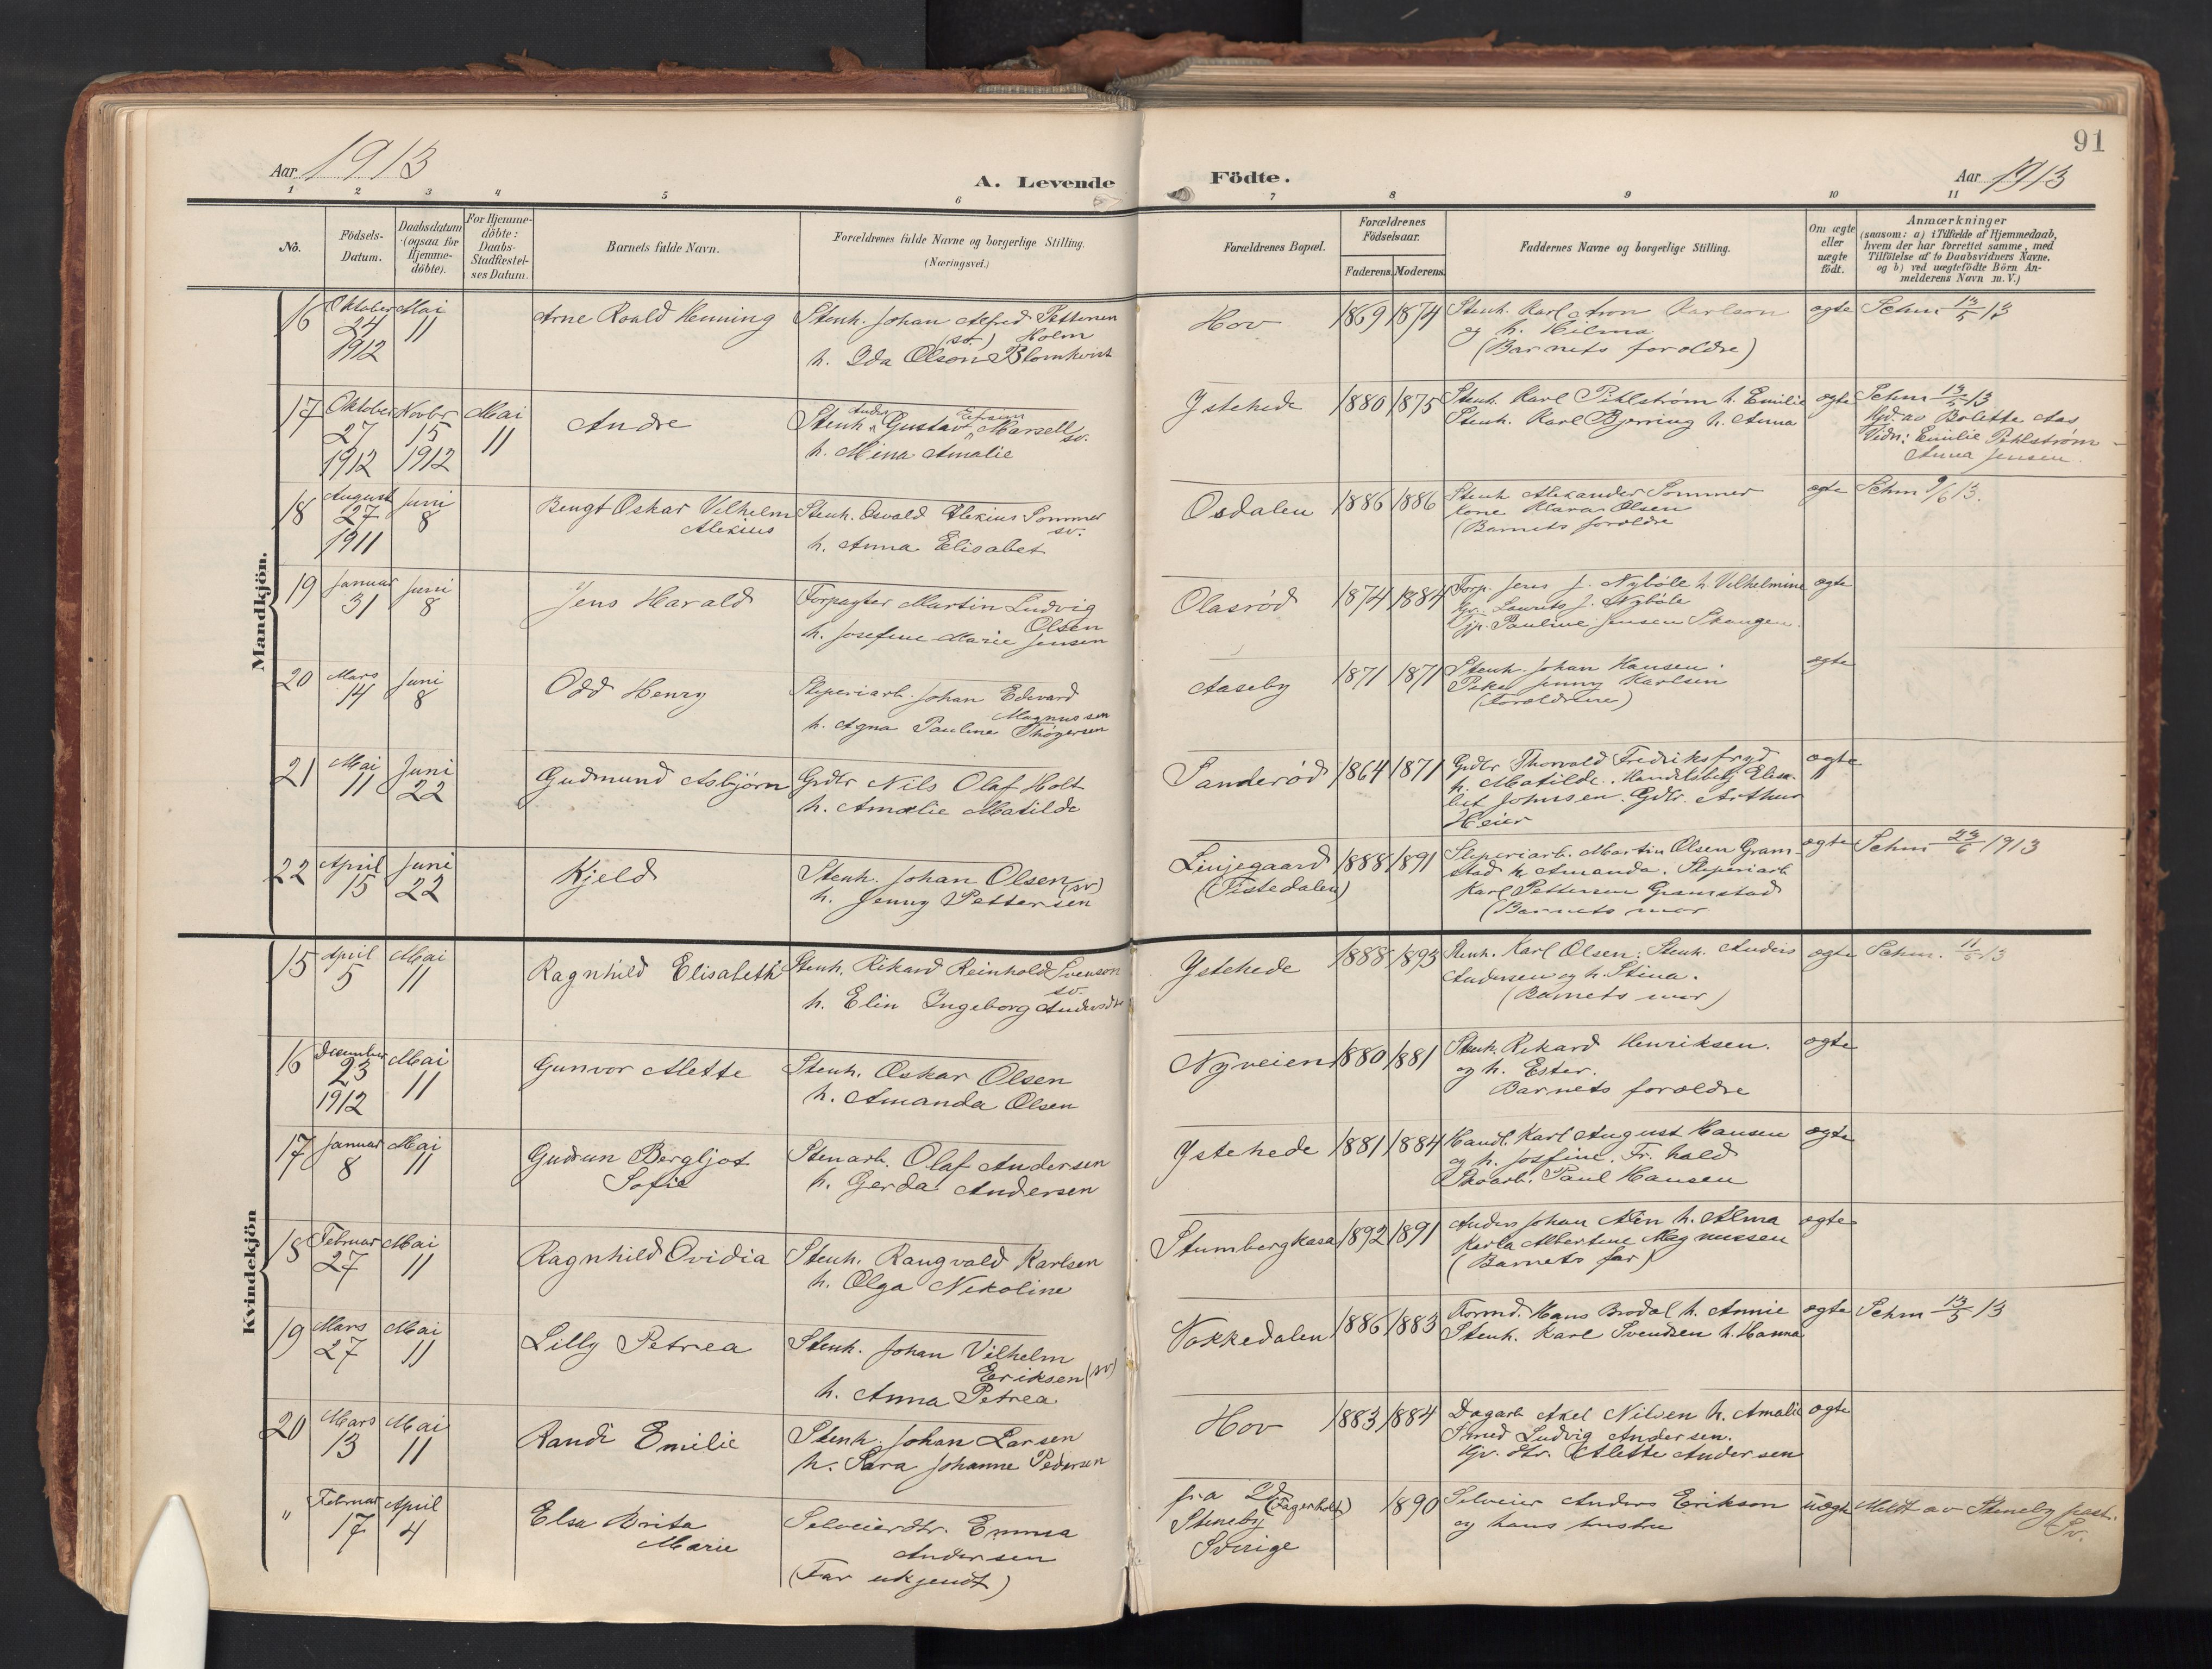 91
Aar 1913
A. Levende
Födte.
Aar 1913
1 2 3 4 5 6 7 8 9 10 11
No.
Födsels-
Datum.
Daabsdatum
(ogsaa for
Hjemme-
döbte).
For Hjemme-
döbte:
Daabs-
Stadfæstel-
ses Datum.
Barnets fulde Navn.
Forældrenes fulde Navne og borgerlige Stilling.
(Næringsvei.)
Forældrenes Bopæl.
Forældrenes
Födselsaar.
Faderens. Moderens.
Faddernes Navne og borgerlige Stilling.
Om ægte
eller
uægte
födt.
Anmærkninger
(saasom: a) i Tilfælde af Hjemmedaab,
hvem der har forrettet samme, med
Tilföielse af to Daabsvidners Navne.
og b) ved uægtefödte Börn An-
melderens Navn m. V.)
Mandkjön.
16
Oktober
24
1912
Mai
11
Arne Roald Henning
Stenh. Johan Alfred Pettersen
(sv.) Holm
h. Ida Olson Blomkvist
Hov
1869
1874
Stenh. Karl Aron Karlson
og h. Hilma
(Barnets foroldre)
ogte
Schm 13/5 13
17
Oktober
27
1912
Novbr
15
1912
Mai
11
Andre
Stenh. Gustav Marsell
sv.
h. Mina Amalie
Ystehede
1880
1875
Stenh. Karl Pihlstrøm h. Emilie
Stenh. Karl Bjerring h. Anna
ogte
Schm 13/5 13
Hjd. av Bolette Aas
Vidn: Emilie Pihlstrøm -
Anna Jensen.
18
August
27
1911
Juni
8
Bengt Oskar Vilhelm
Alexius
Stenh. Osvald Alexius Sommer
sv.
h. Anna Elisabet
Osdalen
1886
1886
Stenh Alexander Sommer
Kone Klara Olsen
(Barnets foroldre
ogte
Schm 9/6 13.
19
Januar
31
Juni
8
Jens Harald
Forpagter Martin Ludvig
Olsen
h. Josefine Marie Jensen
Olasrød
1874
1884
Forp. Jens J. Nybøle h. Vilhelmine
Gv. Laurits J. Nybøle
Tjp. Pauline Jensen Skaugen.
ogte
20
Mars
14
Juni
8
Odd Henry
Sliperiarb. Johan Edevard
Magnussen
h. Agna Pauline Thøgersen
Aaseby
1871
1871
Stenh. Johan Hansen.
Pike Jenny Karlsen
(Foroldrene)
ogte
21
Mai
11
Juni
22
Gudmund Asbjørn
Grdbr Nils Olaf Holt
h. Amalie Matilde
Sanderød
1864
1871
Grdbr Thorvald Fredriksfryd
h. Matilde. Handelsbetj Elisa-
bet Johnsen. Grdbr. Arthur
Heier
ogte
22
April
15
Juni
22
Kjeld
Stenh. Johan Olsen (sv)
h. Jenny Pettersen
Linjegaard
(Tistedalen)
1888
1891
Sliperiarb. Martin Olsen Gram-
stad h Amanda. Sliperiarb
Karl Pettersen Gramstad
(Barnets mor
ogte
Schm 23/6 1913
Kvindekjön
15
April
5
Mai
11
Ragnhild Elisabeth
Stenh. Rikard Reinhold Svenson
sv.
h. Elin Ingeborg Andersdtr
Ystehede
1888
1893
Stenh. Karl Olsen. Stenh. Anders
Andersen og h. Stina.
(Barnets mor)
ogte
Schm. 11/5 13
16
Desember
23
1912
Mai
11
Gunvor Alette
Stenh. Oskar Olsen
h. Amanda Olsen
Nyveien
1880
1881
Stenh. Rikard Henriksen.
og h. Ester.
Barnets foroldre
ogte
17
Januar
8
Mai
11
Gudrun Bergljot
Sofie
Stenarb. Olaf Andersen
h. Gerda Andersen
Ystehede
1881
1884
Handl. Karl August Hansen
og h. Josfine. Fr. hald
Skoarb. Paul Hansen
ogte
18
Februar
27
Mai
11
Ragnhild Ovidia
Stenh. Rangvald Karlsen
h. Olga Nikoline
Stumbergkasa
1892
1891
Anders Johan Alen h. Alma
Karla Albertine Magnussen
(Barnets far)
ogte
19
Mars
27
Mai
11
Lilly Petrea
Stenh. Johan Vilhelm
Eriksen (sv)
h. Anna Petrea
Vokkedalen
1886
1883
Formd. Hans Brodal h. Annie
Stenh. Karl Svendsen h. Hanna
ogte
Schm 13/5 13
20
Mars
13
Mai
11
Randi Emilie
Stenh. Johan Larsen
h. Sara Johanne Pedersen
Hov
1883
1884
Dagarb Axel Nilsen h. Amalie
Smed Ludvig Andersen.
Gv. dtr. Alette Andersen
ogte
"
Februar
17
April
4
Elsa Brita
Marie
Selveierdtr. Emma
Andersen
(Far ukjendt)
fra Id (Fagerholt)
Steneby
Sverige
1890
Selveier Anders Erikson
og hans hustru
uogte
Meldt av Steneby past.
Sv.